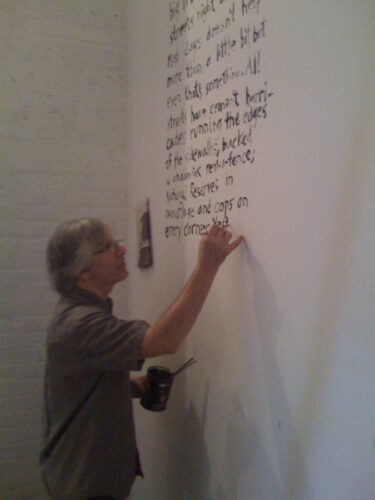 big
streets right
rest does doesn't help
more than a little bit but
even that's something. All
streets have cement barri-
cades running the edges
of the sidewalks, backed
w/ chainlink rest-o-fence;
National Reserves in
camouflage and cops on
every corner. Yest